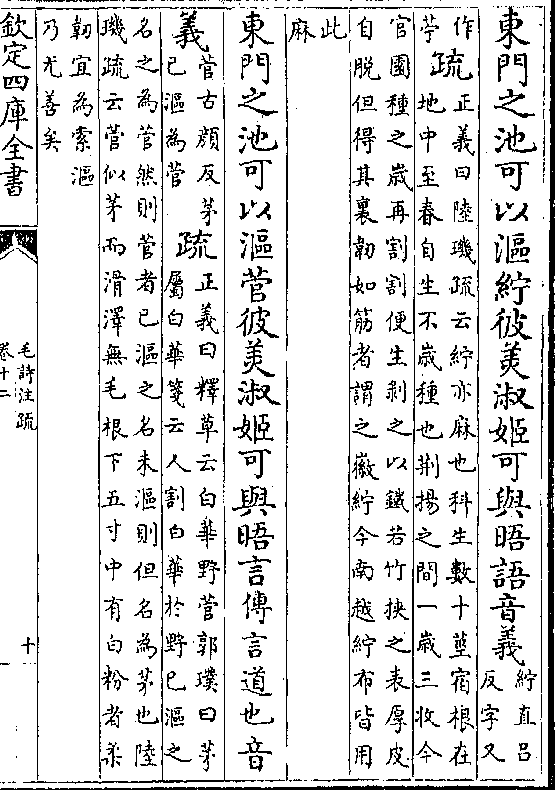 東門之池可以漚紵彼美淑姬可與晤語音義
紵直呂
反字又
作
苧
疏
正義曰陸璣疏云紵亦麻也科生數十莖宿根在
地中至春自生不歳種也荆揚之間一歳三收今
官園種之歳再割割便生剥之以鐵若竹挾之表厚皮
自脱但得其裏韌如筋者謂之徽紵今南越紵布皆用
此
麻
東門之池可以漚菅彼美淑姬可與晤言傳言道也音
義
菅古顔反茅
已漚為菅
疏
正義曰釋草云白華野菅郭璞曰茅
屬白華箋云人割白華於野已漚之
名之為菅然則菅者已漚之名未漚則但名為茅也陸
璣疏云菅似茅而滑澤無毛根下五寸中有白粉者柔
韌宜為索漚
乃尤善矣
欽定四庫全書
毛詩注疏
卷十二
十